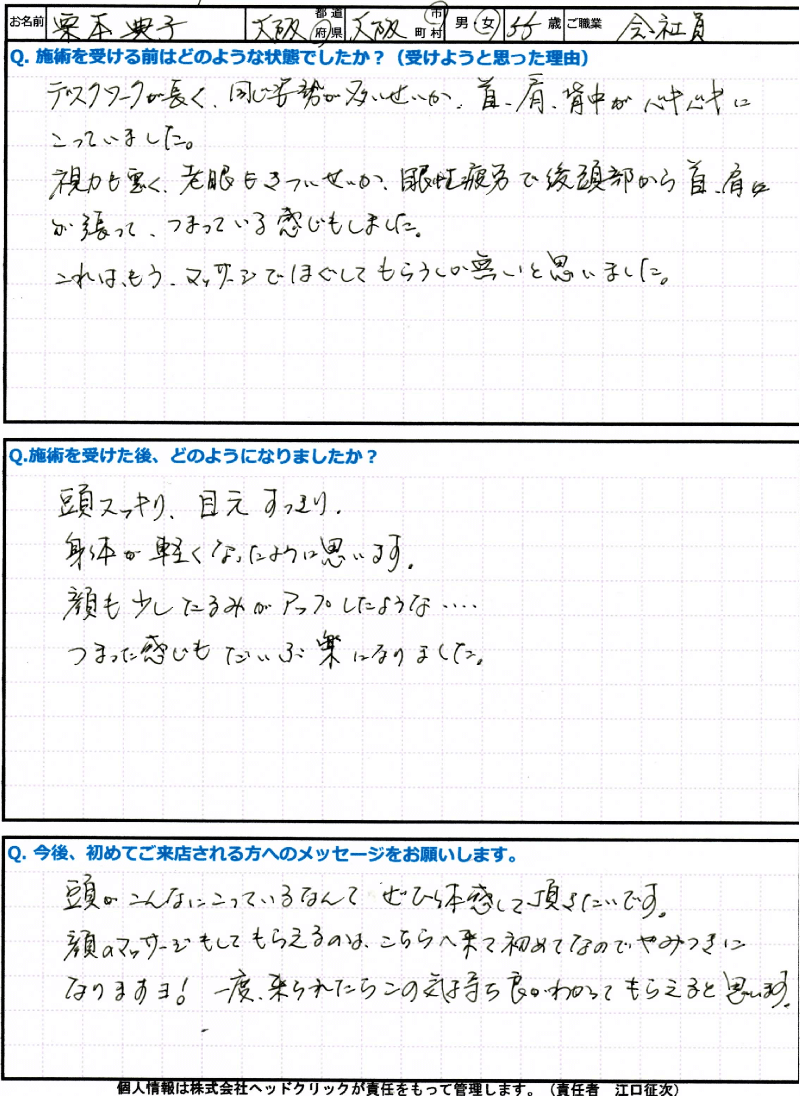 お名前 栗本 典子 大阪 都道府県 大阪 市町村 男・女 55 歳 ご職業 会社員
Q. 施術を受ける前はどのような状態でしたか？（受けようと思った理由）
デスクワークが長く、同じ姿勢が多いせいか、首、肩、背中がバキバキに
こっていました。
視力も悪く、老眼もきついせいか、眼性疲労で後頭部から首、肩に
が張って、つまっている感じもしました。
これは、もう、マッサージでほぐしてもらうしか無いと思いました。
Q.施術を受けた後、どのようになりましたか？
頭スッキリ、目元すっきり。
身体が軽くなったように思います。
顔も少したるみがアップしたような‥‥
つまった感じもだいぶ楽になりました。
Q. 今後、初めてご来店される方へのメッセージをお願いします。
頭がこんなにこっているなんてぜひ体感して頂きたいです。
顔のマッサージもしてもらえるのは、こちらへ来て初めてなのでやみつきに
なりますヨ！ 一度、来られたらこの気持ち良がわかってもらえると思います。
個人情報は株式会社ヘッドクリックが責任をもって管理します。（責任者 江口征次）